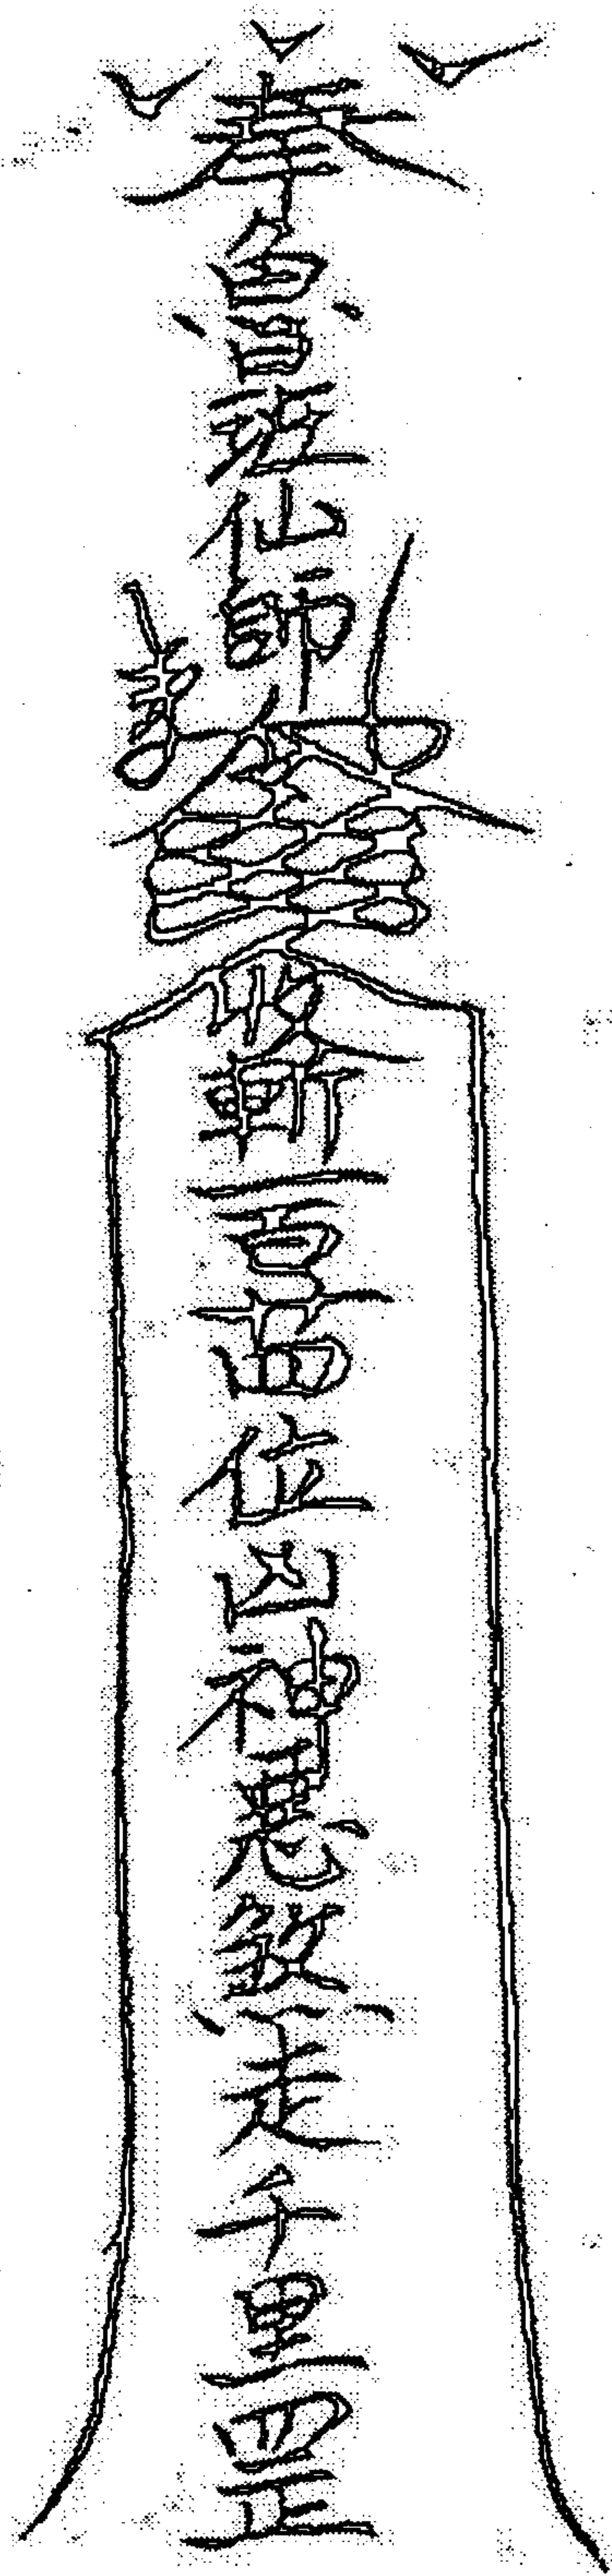 奉魯班仙師
收斬一百廿四位凶神惡煞走千里罡